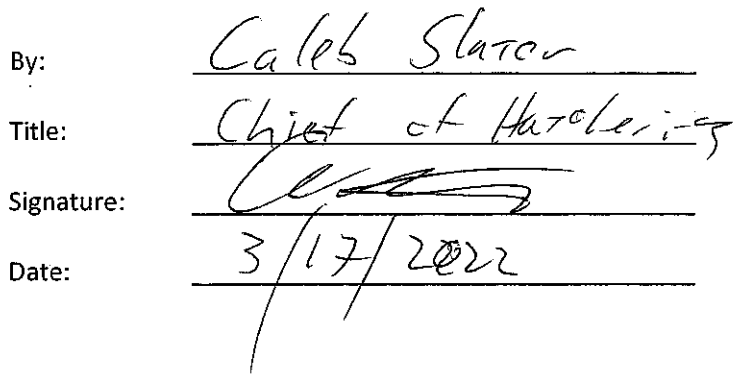 By: Caleb Slater
Title: Chief of Hatcheries
Signature:
Date: 3/17/2022